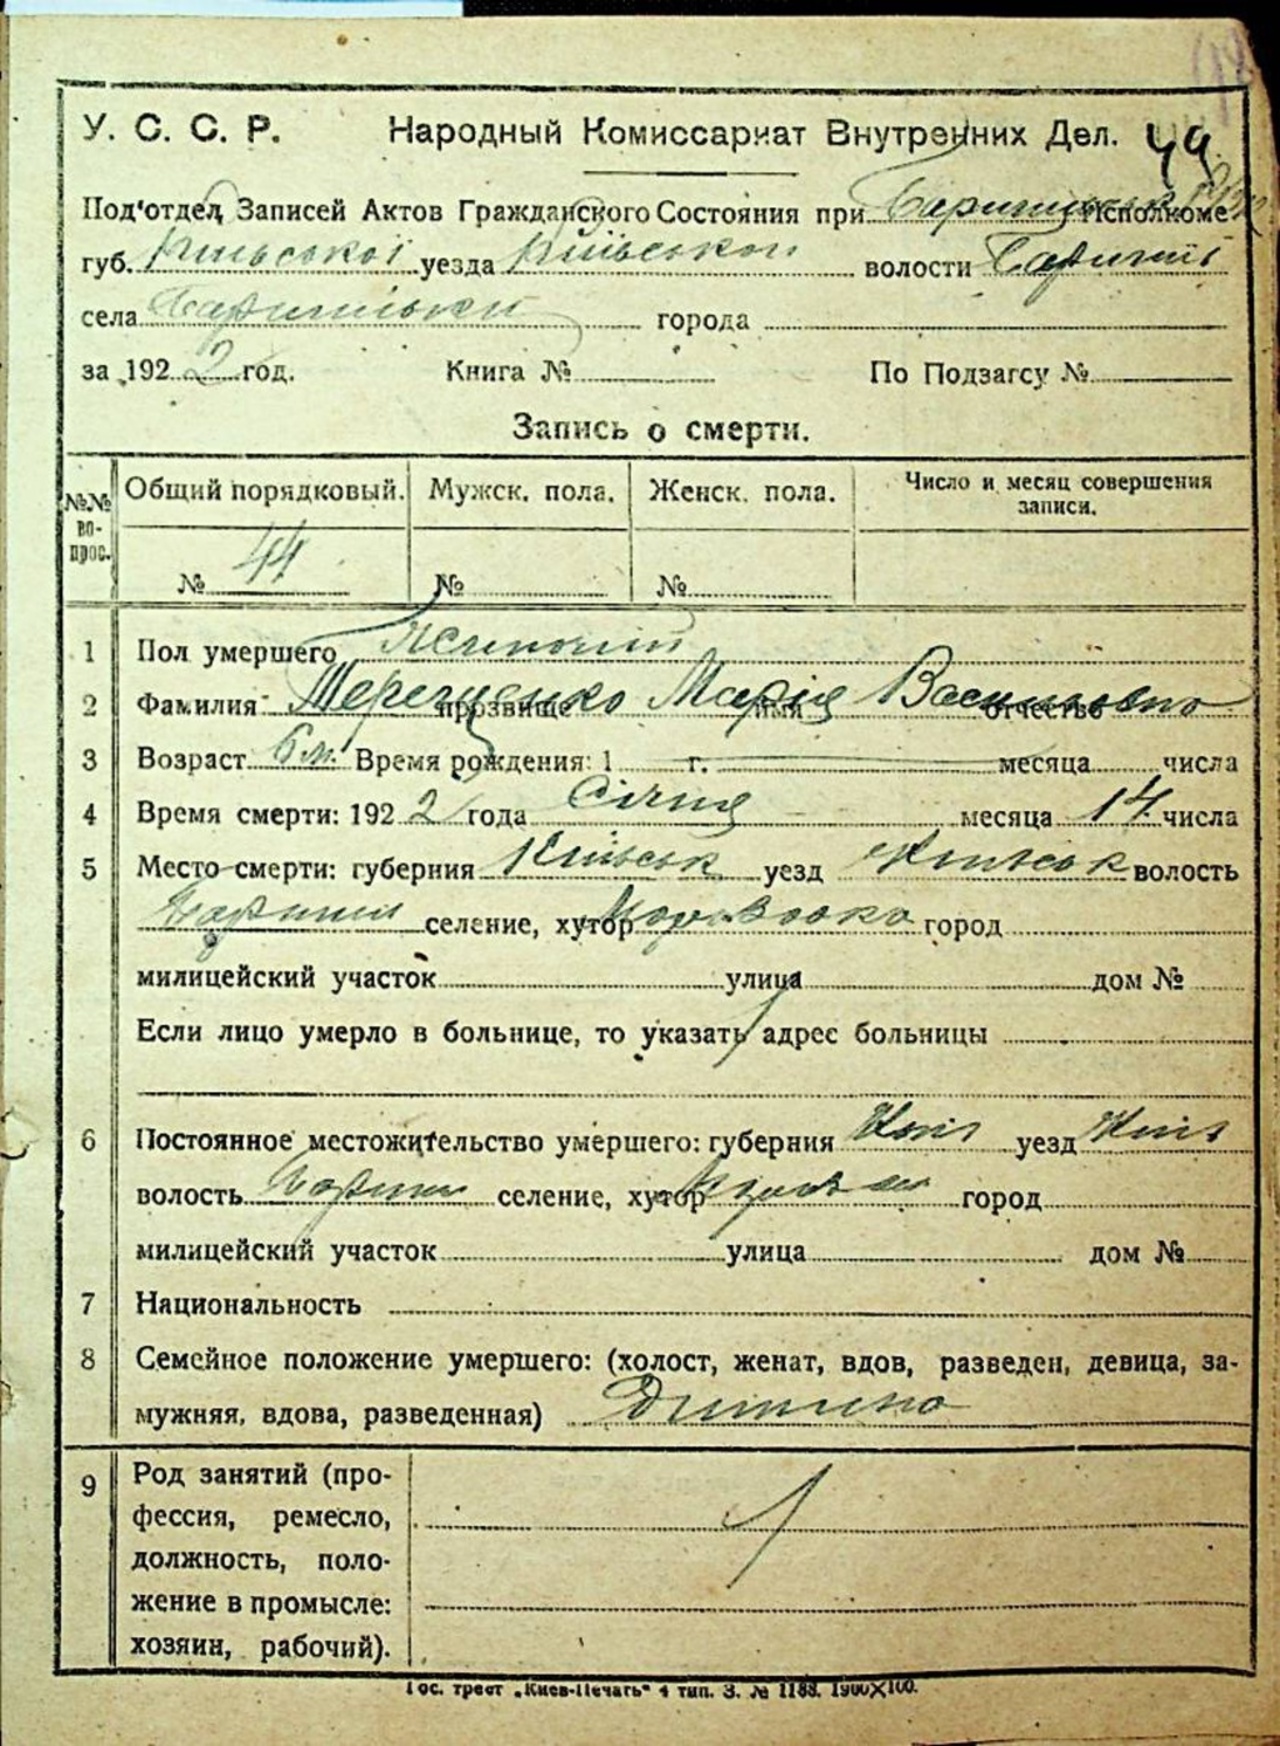 У. С. С. Р. Народный Комиссариат Внутренних Дел. 44
Под'отдел Записей Актов Гражданского Состояния при Исполкоме
губ. Київської уезда Київської волости
села города
за 1922 год. Книга № По Подзагсу №
Запись о смерти.
№№ во-прос. Общий порядковый. Мужск. пола. Женск. пола. Число и месяц совершения записи.
№ 44 № №
1 Пол умершего
2 Фамилия Терещенко прозвище Марія имя Василовна отчество
3 Возраст 6 м. Время рождения: 1 г. месяца числа
4 Время смерти: 1922 года Січня месяца 14 числа
5 Место смерти: губерния Київськ уезд Київськ волость
селение, хутор город
милицейский участок улица дом №
Если лицо умерло в больнице, то указать адрес больницы
6 Постоянное местожительство умершего: губерния Київ уезд Київ
волость селение, хутор город
милицейский участок улица дом №
7 Национальность
8 Семейное положение умершего: (холост, женат, вдов, разведен, девица, за-
мужняя, вдова, разведенная) Дитина
9 Род занятий (про-
фессия, ремесло,
должность, поло-
жение в промысле:
хозяин, рабочий).
Гос. трест „Киев-Печать" 4 тип. З. № 1188. 1900X100.